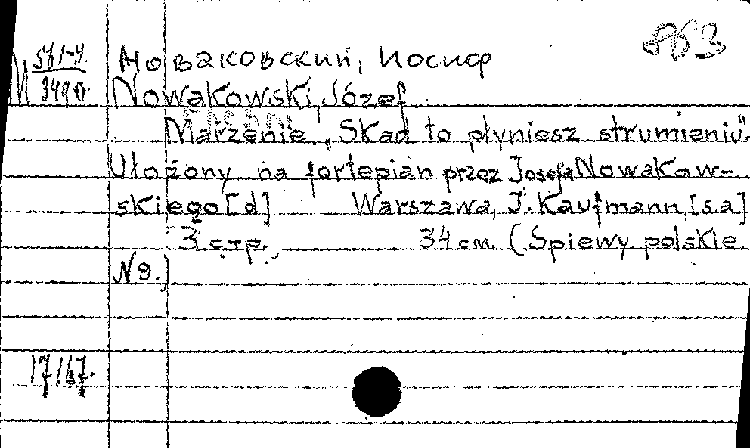 Новаковский, Иосиф
Nowakowski, Józef
Marzenie „Skąd to płyniesz strumieniu”.
Ułożony na fortepian przez Josefa Nowakow-
skiego [d] Warszawa, J. Kaufmann, [s.a]
3 стр., 34 см. (Śpiewy polskie
N 9.)
17/67.